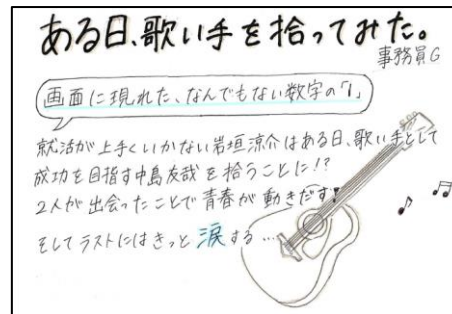 ある日、歌い手を拾ってみた。
事務員G
画面に現れた、なんでもない数字の「1」
就活が上手くいかない岩垣涼介はある日、歌い手として
成功を目指す中島友哉を拾うことに!?
2人が出会ったことで青春が動きだす!
そしてラストにはきっと涙する…